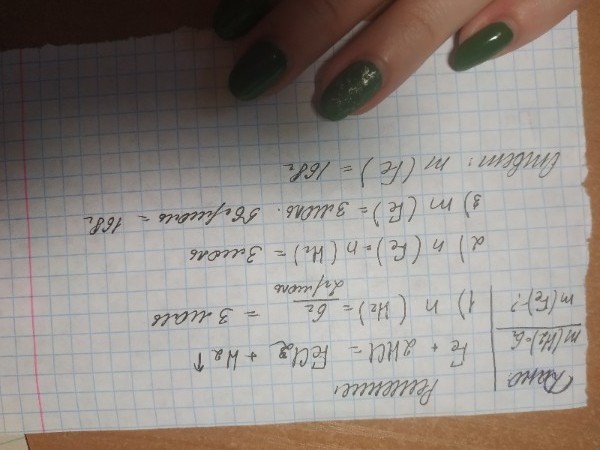 Дано:
m(H₂)=6г
m(Fe)-?
Решение:
Fe + 2HCl = FeCl₂ + H₂↑
1) n (H₂) = 6г / 2г/моль = 3 моль
2) n (Fe) = n (H₂) = 3 моль
3) m (Fe) = 3 моль · 56г/моль = 168г
Ответ: m (Fe) = 168г